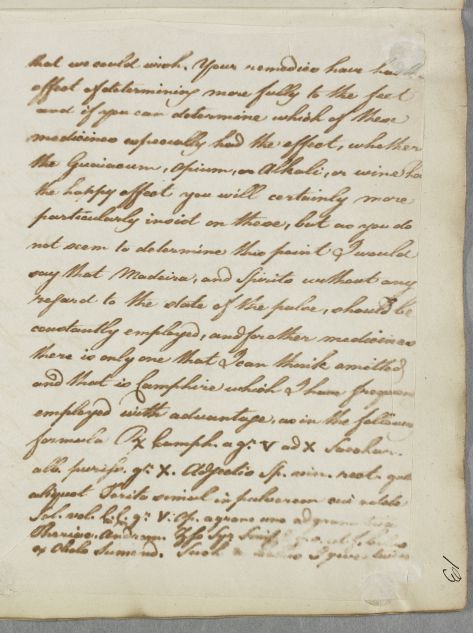 that we could wish. Your remedies have had the
effect of determining more fully to the feet
and if you can determine which of these
medicines especially had the effect, whether
the Guaiacum, Opium, or Alkali, or wine had
the happy effect you will certainly more
particularly insist on these, but as you do
not seem to determine this point I would
say that Madeira, and Spirits without any
regard to the state of the pulse, should be
constantly employed, and for other medicines
there is only one that I can think omitted,
and that is Camphire which I have frequen
employed with advantage, as in the following
formula ℞ Camph. a gr. V ad X Sacchar.
alb. puriss. gr. X. Adjectis Sp. vin. rect. gutt
aliquot Terito simul in pulverem cui adde
Sal. vol. C.C. gr. V. Op. a grano uno ad grana
Theriac. Androm. Syr.
ex Sumend. I give
13